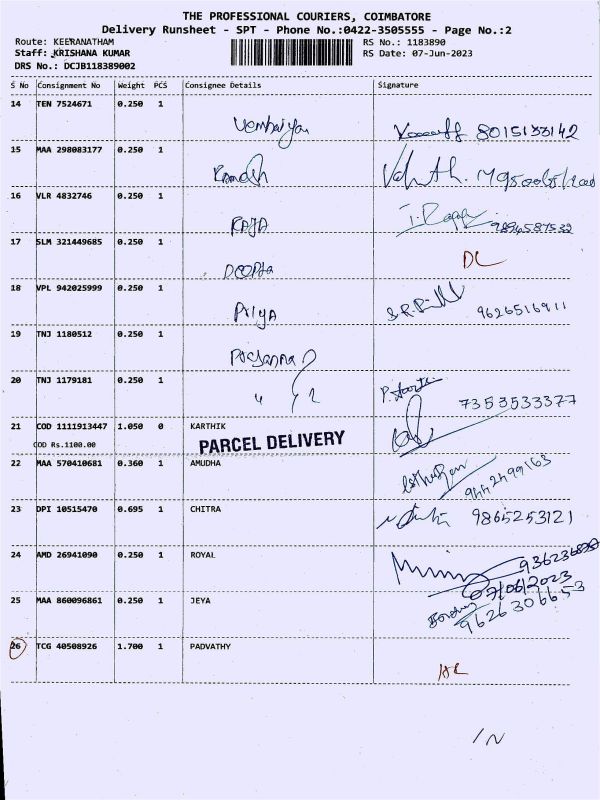 THE PROFESSIONAL COURIERS, COIMBATORE
Delivery Runsheet - SPT - Phone No.:0422-3505555 - Page No.:2
Route: KEERANATHAM RS No.: 1183890
Staff: KRISHANA KUMAR RS Date: 07-Jun-2023
DRS No.: DCJB118389002
S No Consignment No Weight PCS Consignee Details Signature
14 TEN 7524671 0.250 1
8015133142
15 MAA 298083177 0.250 1
Ramesh
16 VLR 4832746 0.250 1
RAJA 9894587532
17 SLM 321449685 0.250 1
Deepta DL
18 VPL 942025999 0.250 1
Priya 9626516911
19 TNJ 1180512 0.250 1
Prasanna
20 TNJ 1179181 0.250 1
7353533377
21 COD 1111913447 1.050 0 KARTHIK
COD Rs.1100.00 PARCEL DELIVERY
22 MAA 570410681 0.360 1 AMUDHA
9442499163
23 DPI 10515470 0.695 1 CHITRA
9865253121
24 AMD 26941090 0.250 1 ROYAL
07/06/2023
25 MAA 860096861 0.250 1 JEYA
9626306653
26 TCG 40508926 1.700 1 PADVATHY